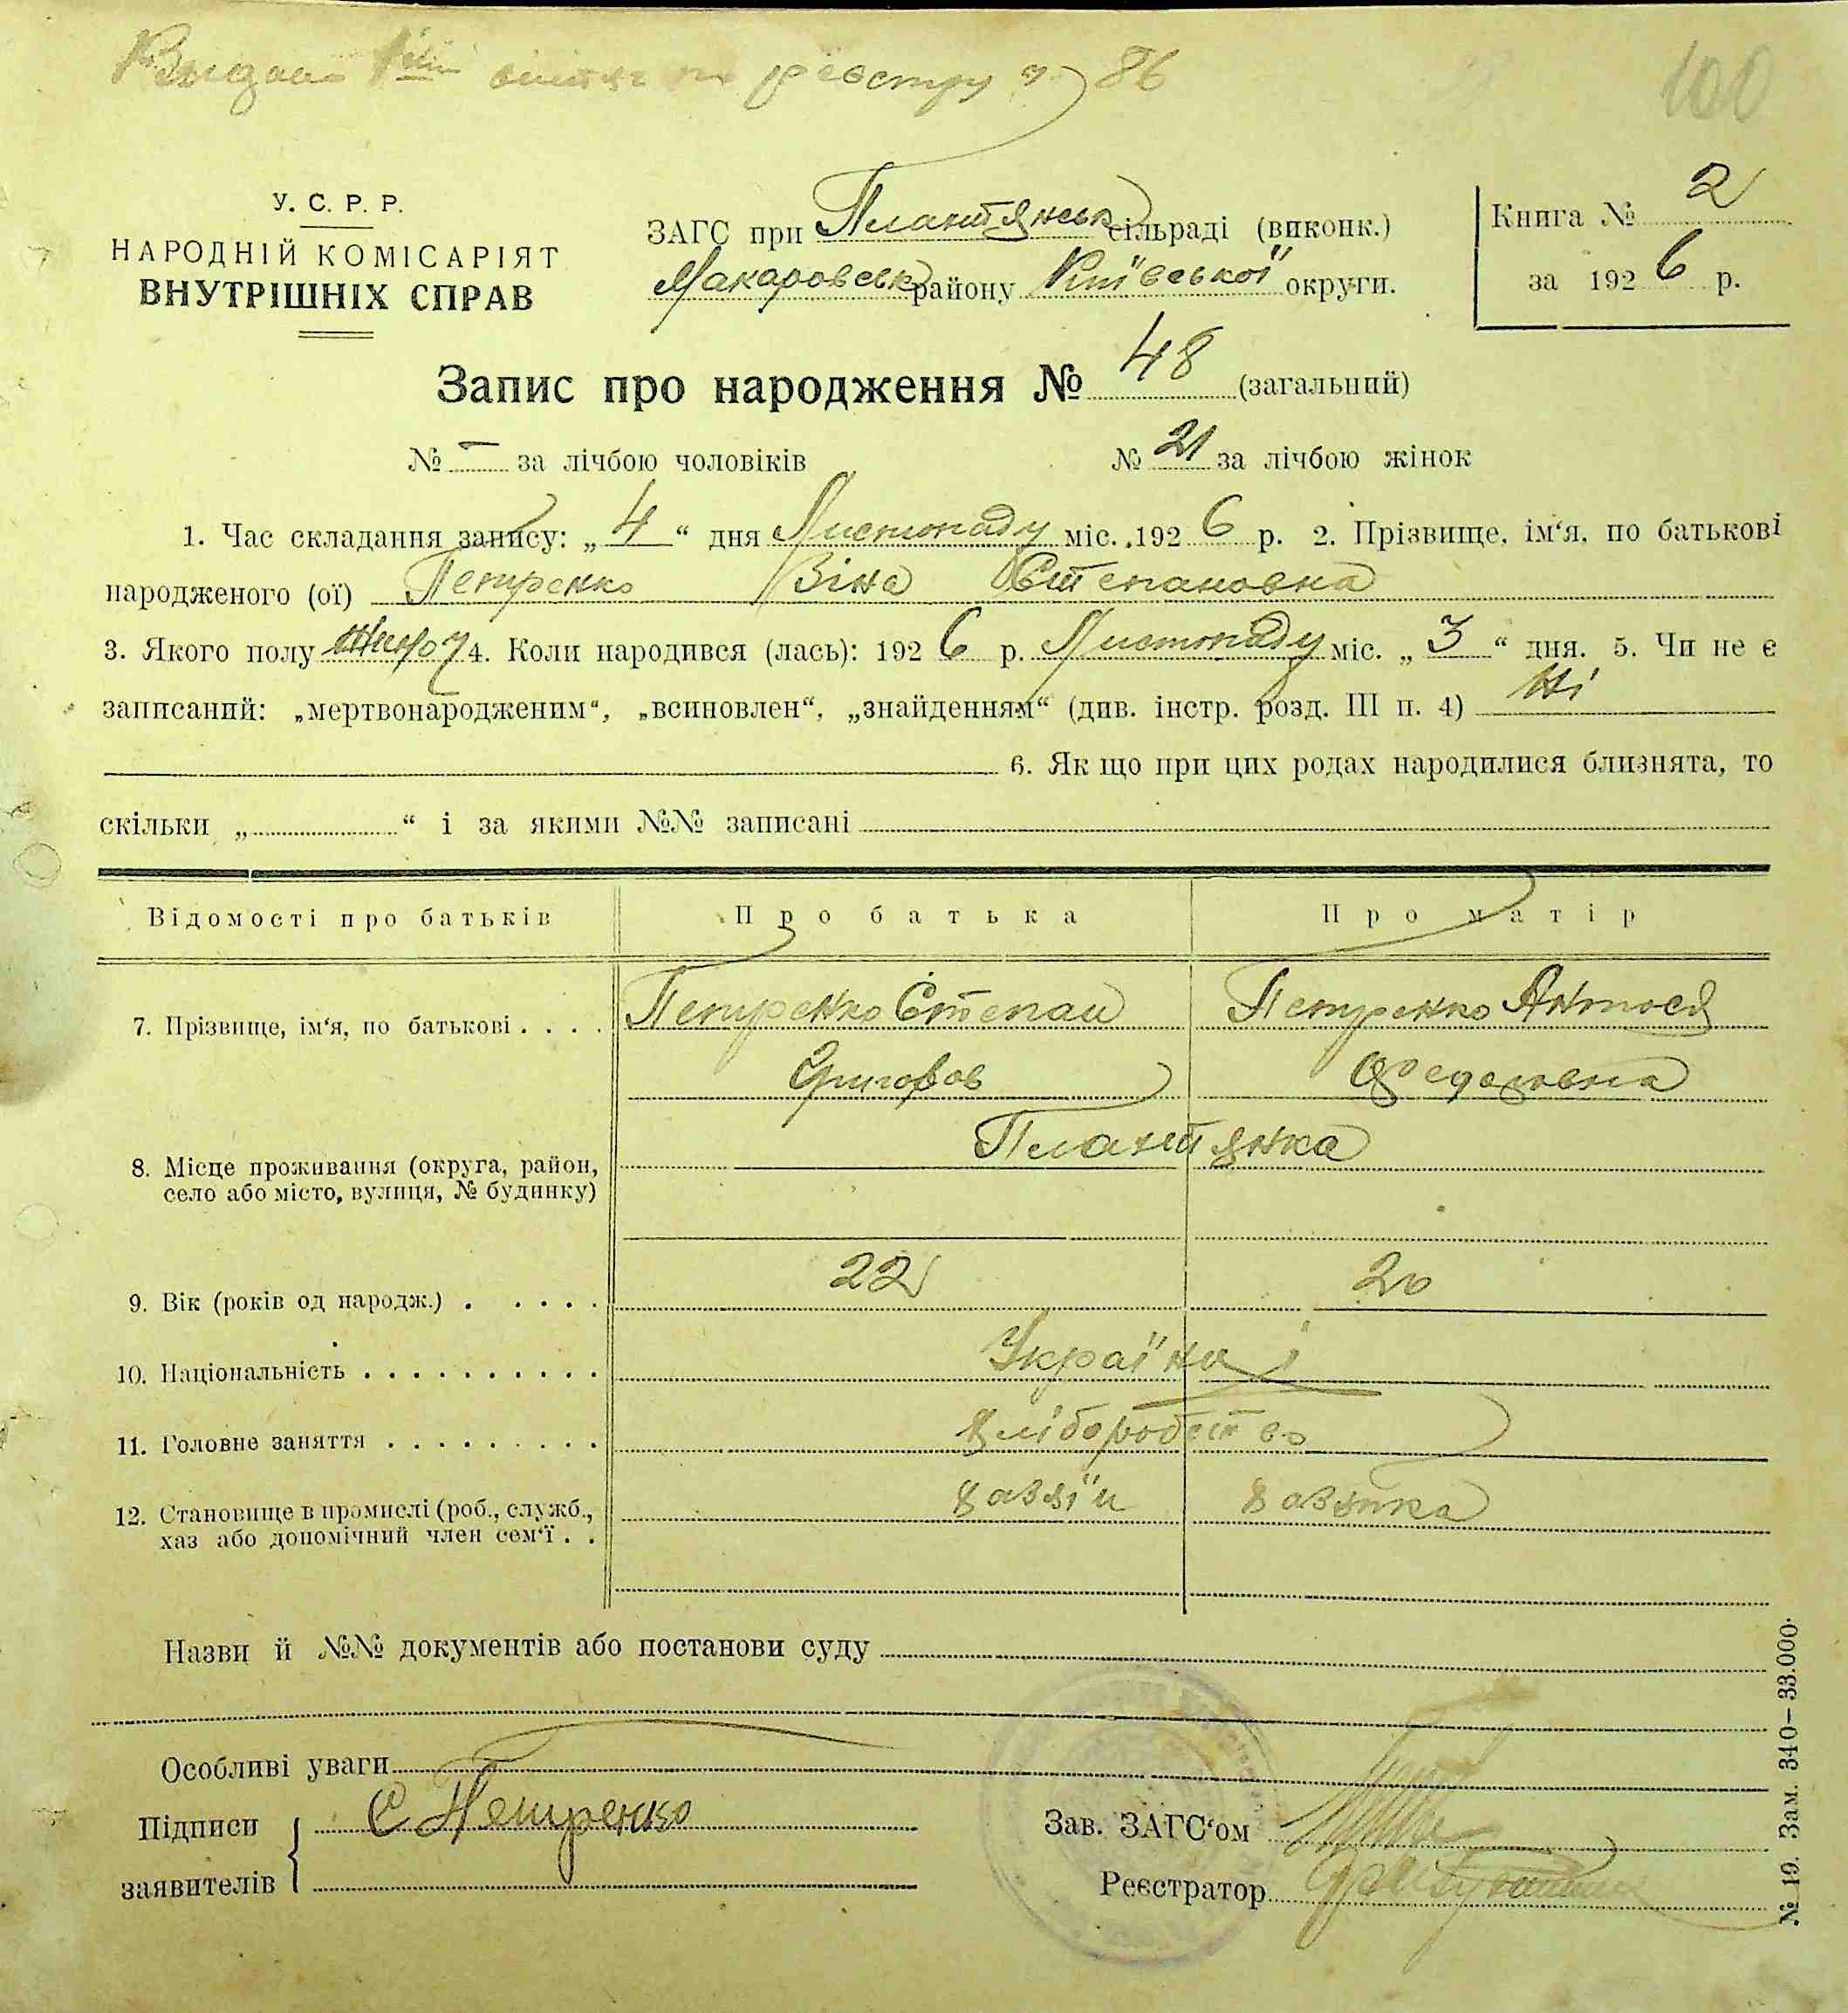 реєстру ч 86
100
У. С. Р. Р.
НАРОДНІЙ КОМІСАРІЯТ
ВНУТРІШНІХ СПРАВ
ЗАГС при Плахтянськ сільраді (виконк.)
Макаровськ району Київської округи.
Книга № 2
за 1926 р.
Запис про народження № 48 (загальний)
№ — за лічбою чоловіків № 21 за лічбою жінок
1. Час складання запису: „4“ дня Листопаду міс. 1926 р. 2. Прізвище, ім‘я, по батькові
народженого (ої) Петренко Зіна Степановна
3. Якого полу жіночо 4. Коли народився (лась): 1926 р. Листопаду міс. „3“ дня. 5. Чи не є
записаний: „мертвонародженим“, „всиновлен“, „знайденням“ (див. інстр. розд. III п. 4) Ні
6. Як що при цих родах народилися близнята, то
скільки „ “ і за якими №№ записані
Відомості про батьків Про батька Про матір
7. Прізвище, ім‘я, по батькові . . . . Петренко Степан Петренко Антося
Григоров Федоровна
8. Місце проживання (округа, район,
село або місто, вулиця, № будинку) Плахтянка
9. Вік (років од народж.) . . . . . 22 20
10. Національність . . . . . . . . . . Україн ці
11. Головне заняття . . . . . . . . . хліборобство
12. Становище в промислі (роб., служб.,
хаз або допомічний член сем‘ї . . хазяїн хазяйка
Назви й №№ документів або постанови суду
Особливі уваги
Підписи
заявителів С Петренко
Зав. ЗАГС‘ом
Реєстратор
№ 19. Зам. 340–33.000.